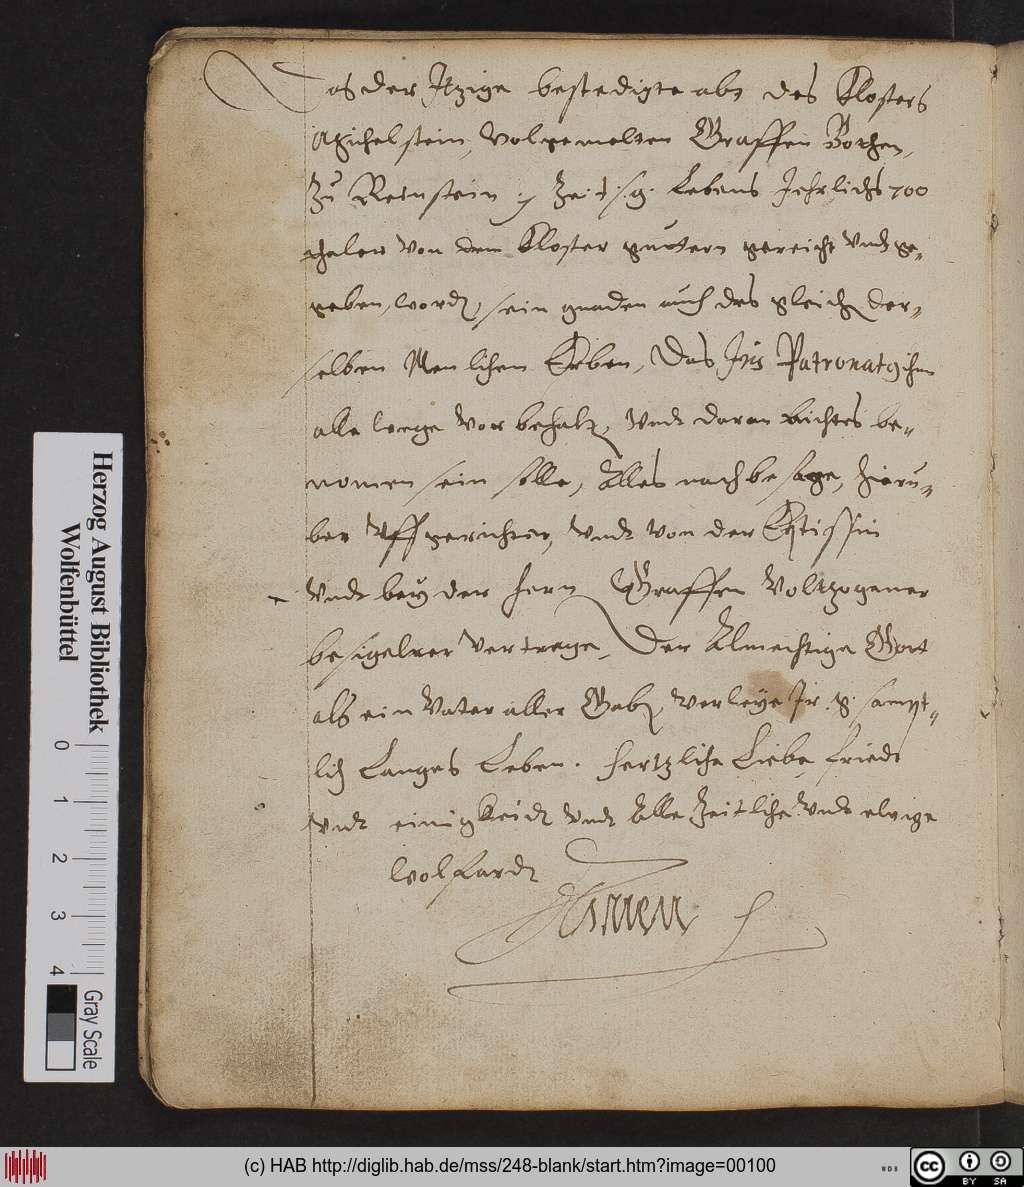 Das der Itzige bestedigte abt des Klosters
Michelstein, Wolgemelten Graffen Bothen,
Zu Reinstein Zeit s. g. Lebens Jehrlichs 700
thaler von dem Kloster guttern gereicht vndt ge-
geben, word, sein gnaden auch des gleich der-
selben Menlichen Erben, Das Jus Patronatus ihn
alle wege vor behalt, Vndt daran nichtes be-
nomen sein solle, Alles nach besage, hieru-
ber vffgerichter, vndt von der Eptissin
Vndt bey der hern Graffen Voltzogener
besigelter Vertrege, Der Almechtige Gott
als ein Vater aller Gab, verleye Ir. g. sampt-
lich Langes Leben. hertzliche Liebe friedt
Vndt einigkeidt vndt Alle Zeitliche vndt ewige
Wolfardt
Amen
Herzog August Bibliothek
Wolfenbüttel
0 1 2 3 4
Gray Scale
(c) HAB http://diglib.hab.de/mss/248-blank/start.htm?image=00100
WDB
cc BY SA